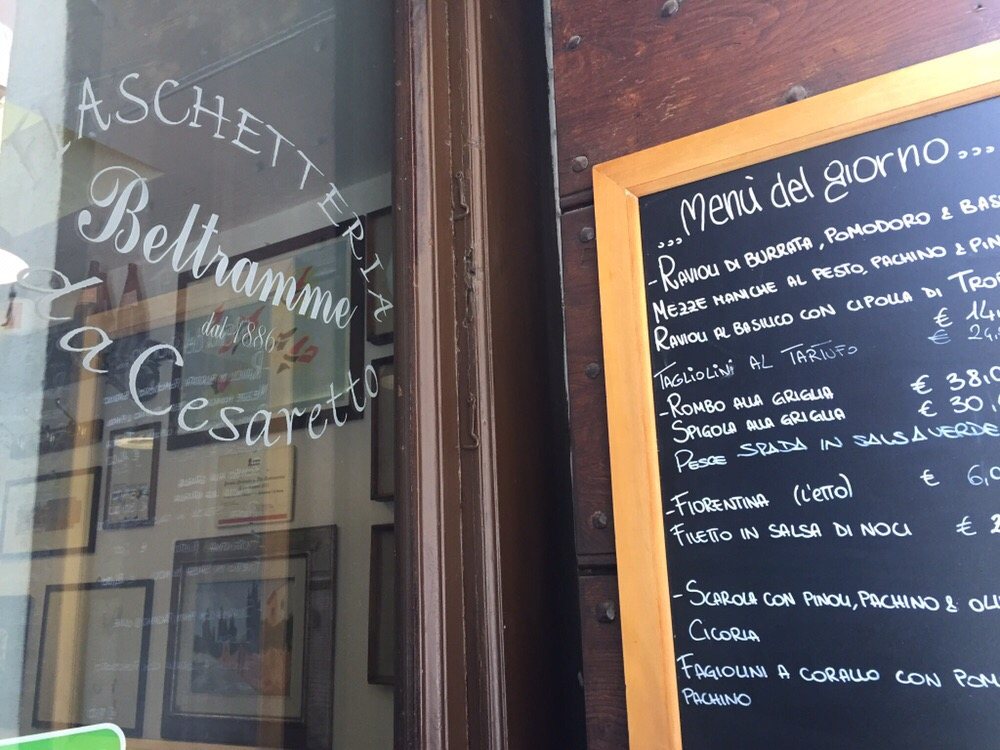 ASCHETTERIA
Beltramme
dal 1886
da Cesaretto
...Menù del giorno...
- RAVIOLI DI BURRATA, POMODORO & BASI
MEZZE MANICHE AL PESTO, PACHINO & PIN
RAVIOLI AL BASILICO CON CIPOLLA DI TRO
€ 14,
TAGLIOLINI AL TARTUFO € 24,
- ROMBO ALLA GRIGLIA € 38,0
SPIGOLA ALLA GRIGLIA € 30,
PESCE SPADA IN SALSA VERDE
- FIORENTINA (L'ETTO) € 6,0
FILETTO IN SALSA DI NOCI €
- SCAROLA CON PINOLI, PACHINO & OLI
CICORIA
FAGIOLINI A CORALLO CON POM
PACHINO